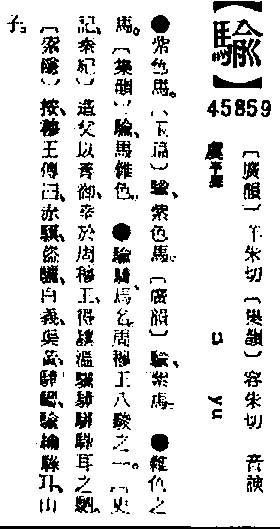 【騟】
45859
〔廣韻〕羊朱切〔集韻〕容朱切 音諛
虞平聲 ㄩ yu
●紫色馬。〔玉篇〕騟、紫色馬。〔廣韻〕騟、紫馬。●雜色之
馬。〔集韻〕騟、馬雜色。●騟、馬名、周穆王八駿之一。〔史
記、秦紀〕造父以善御、幸於周穆王、得驥溫驪驊駵騄耳之駟。
〔索隱〕按、穆王傳曰、赤驥、盜驪、白義、渠黃、驊騮、騟、騄耳、山
子。